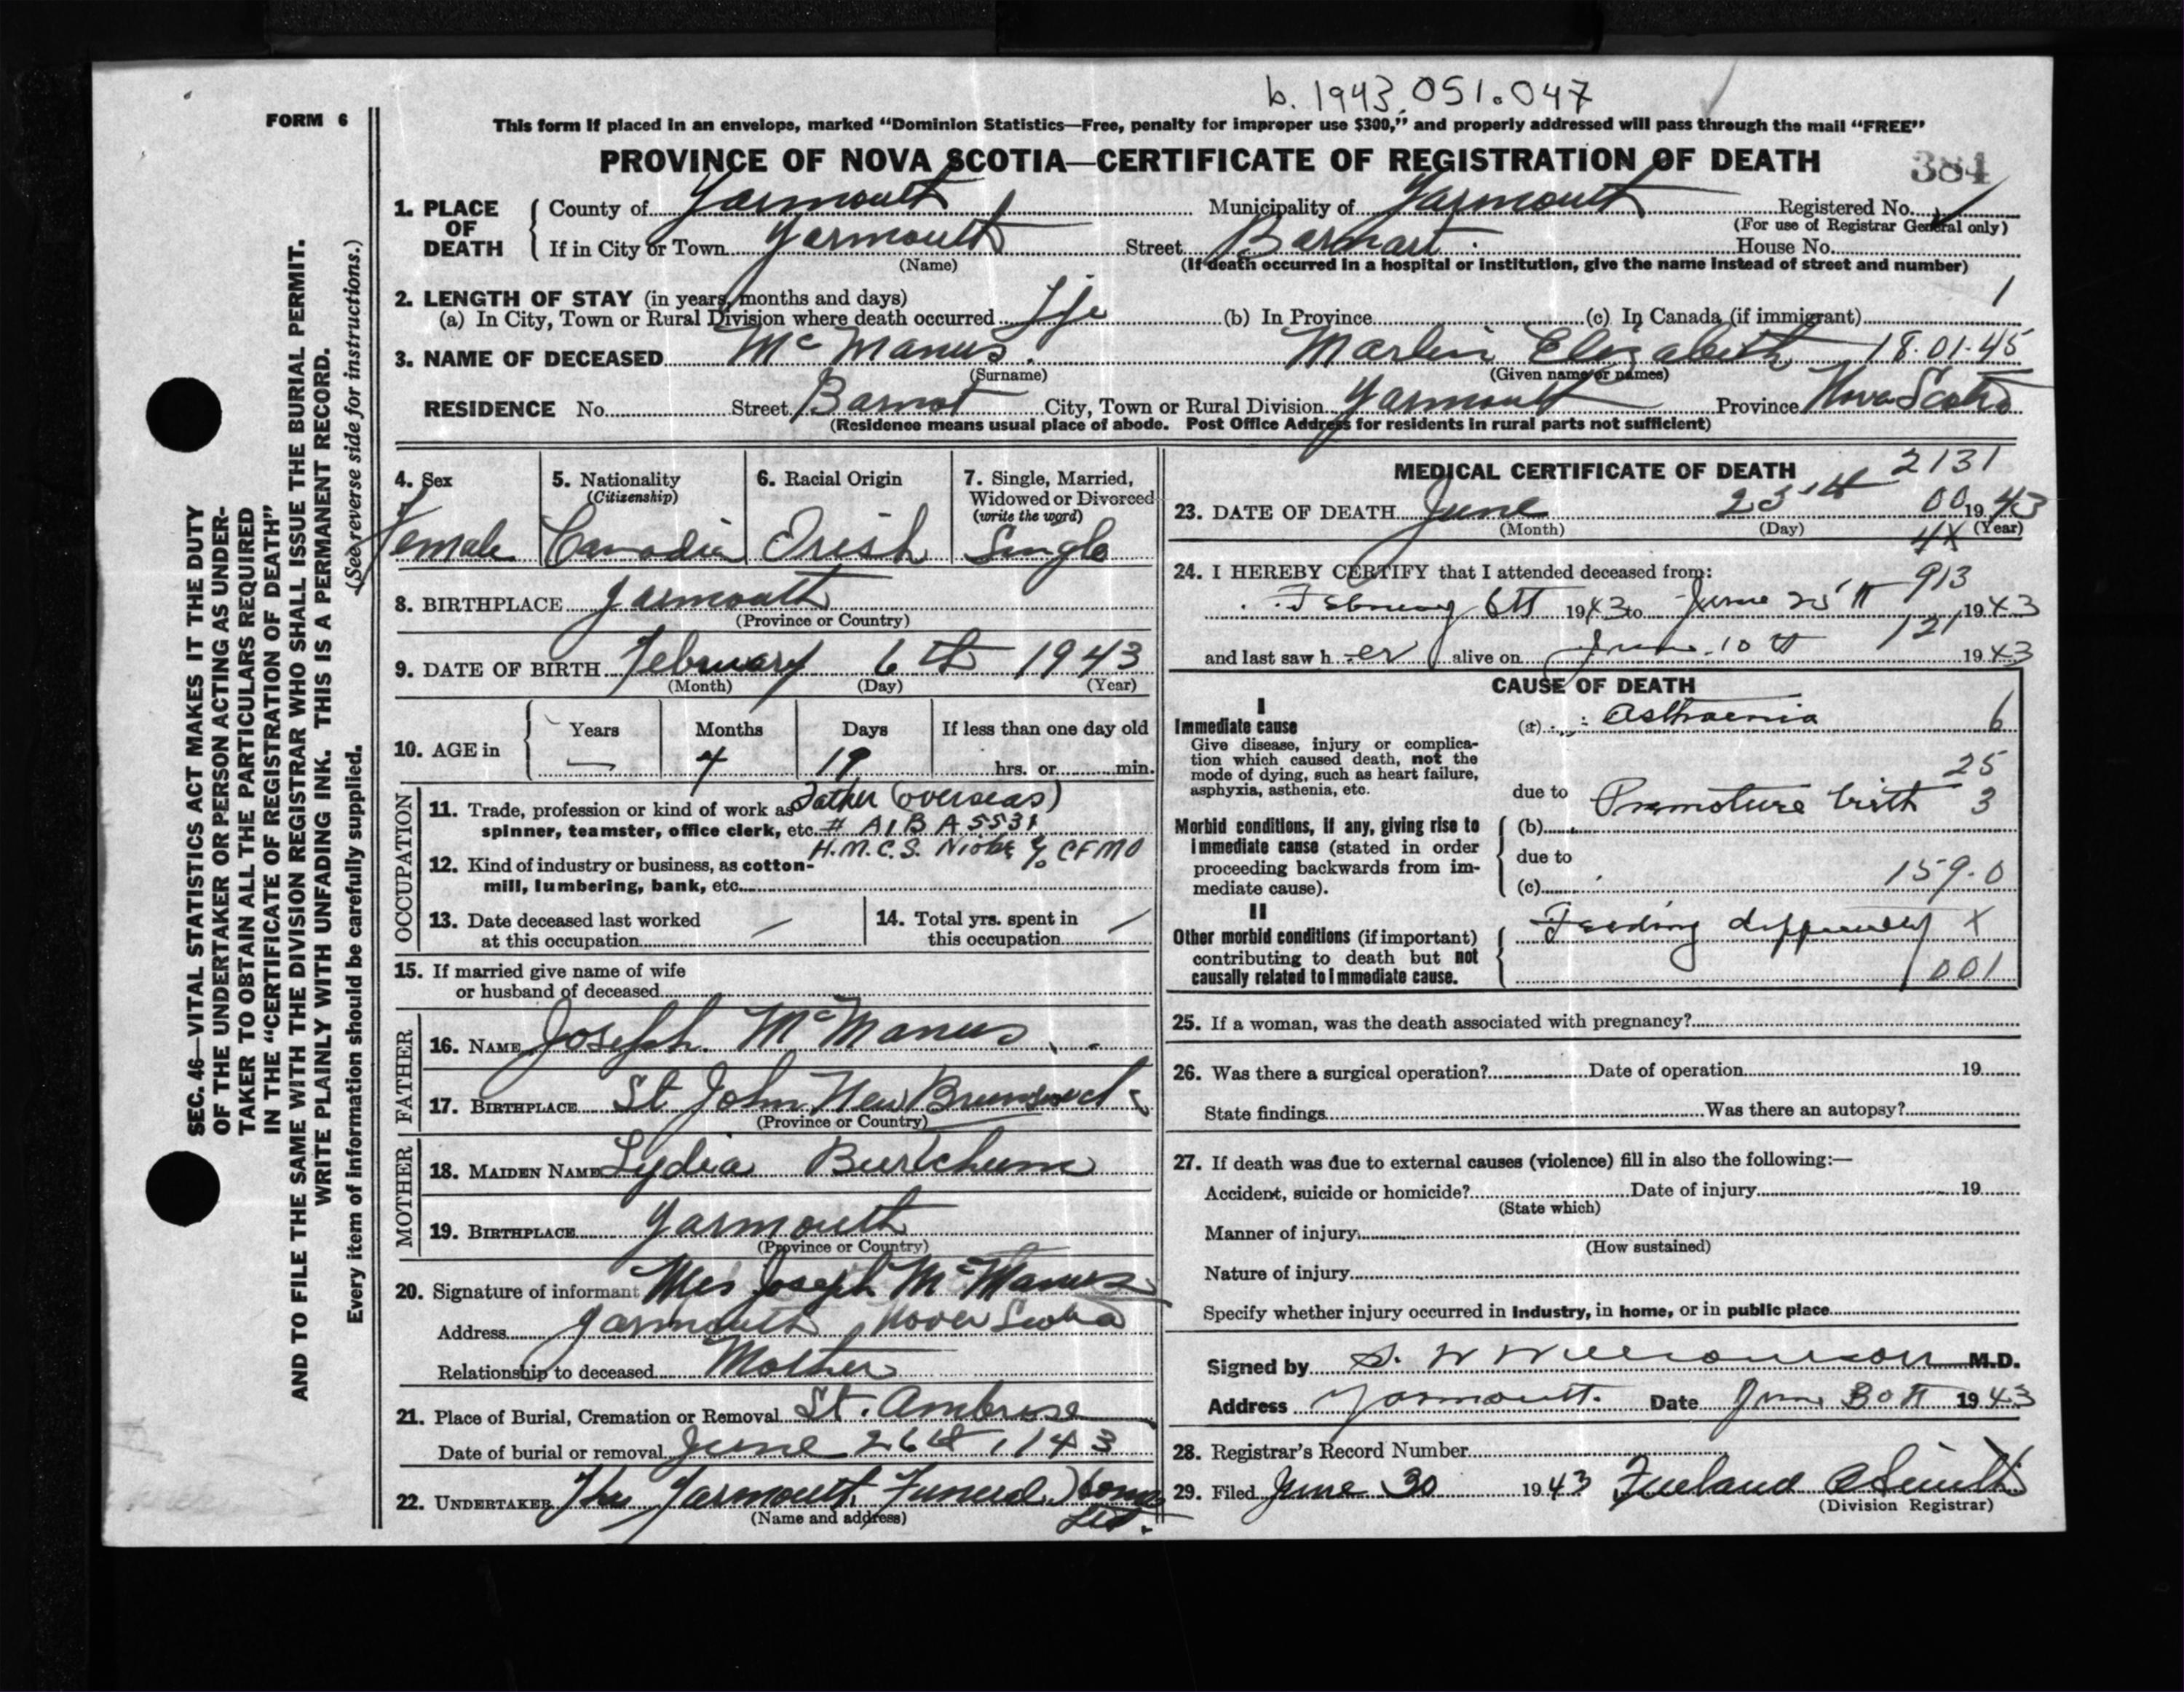 b. 1943.051.047
FORM 6
This form if placed in an envelope, marked “Dominion Statistics—Free, penalty for improper use $300,” and properly addressed will pass through the mail “FREE”
PROVINCE OF NOVA SCOTIA—CERTIFICATE OF REGISTRATION OF DEATH
384
1. PLACE OF DEATH
County of Yarmouth Municipality of Yarmouth Registered No.
(For use of Registrar General only)
If in City or Town Yarmouth Street House No.
(Name) (If death occurred in a hospital or institution, give the name instead of street and number)
2. LENGTH OF STAY (in years, months and days) 1
(a) In City, Town or Rural Division where death occurred Life (b) In Province (c) In Canada (if immigrant)
3. NAME OF DECEASED McManus. Elizabeth 18.01.45
(Surname) (Given name or names)
RESIDENCE No. Street City, Town or Rural Division Yarmouth Province Nova Scotia
(Residence means usual place of abode. Post Office Address for residents in rural parts not sufficient)
SEC. 46—VITAL STATISTICS ACT MAKES IT THE DUTY
OF THE UNDERTAKER OR PERSON ACTING AS UNDER-
TAKER TO OBTAIN ALL THE PARTICULARS REQUIRED
IN THE “CERTIFICATE OF REGISTRATION OF DEATH”
AND TO FILE THE SAME WITH THE DIVISION REGISTRAR WHO SHALL ISSUE THE BURIAL PERMIT.
WRITE PLAINLY WITH UNFADING INK. THIS IS A PERMANENT RECORD.
Every item of information should be carefully supplied. (See reverse side for instructions.)
4. Sex 5. Nationality 6. Racial Origin 7. Single, Married,
(Citizenship) Widowed or Divorced
(write the word)
Female Irish Single
8. BIRTHPLACE Yarmouth
(Province or Country)
9. DATE OF BIRTH February 6th 1943
(Month) (Day) (Year)
10. AGE in Years Months Days If less than one day old
— 4 19 hrs. or min.
OCCUPATION
11. Trade, profession or kind of work as Father (overseas)
spinner, teamster, office clerk, etc. # A1BA5531
H.M.C.S. Niobe % CFMO
12. Kind of industry or business, as cotton-
mill, lumbering, bank, etc.
13. Date deceased last worked —
at this occupation
14. Total yrs. spent in —
this occupation
15. If married give name of wife
or husband of deceased
FATHER
16. NAME Joseph McManus
17. BIRTHPLACE St John New Brunswick
(Province or Country)
MOTHER
18. MAIDEN NAME Lydia
19. BIRTHPLACE Yarmouth
(Province or Country)
20. Signature of informant Mrs Joseph McManus
Address Yarmouth Nova Scotia
Relationship to deceased Mother
21. Place of Burial, Cremation or Removal St. Ambrose
Date of burial or removal June 26th, 143
22. UNDERTAKER The Yarmouth Funeral Home
Ltd.
(Name and address)
MEDICAL CERTIFICATE OF DEATH 2131
23. DATE OF DEATH June 00 1943
(Month) (Day) (Year)
4X
24. I HEREBY CERTIFY that I attended deceased from:
913
February 6th 1943 to June 25th 1943
121
and last saw her alive on June 10th 1943
CAUSE OF DEATH
I
Immediate cause
Give disease, injury or complica-
tion which caused death, not the
mode of dying, such as heart failure,
asphyxia, asthenia, etc.
(a) Asthaenia 6
25
due to
(b) Premature birth 3
Morbid conditions, if any, giving rise to
immediate cause (stated in order
proceeding backwards from im-
mediate cause).
due to
(c) 159.0
II
Other morbid conditions (if important)
contributing to death but not
causally related to immediate cause.
Feeding difficulty X
001
25. If a woman, was the death associated with pregnancy?
26. Was there a surgical operation? Date of operation 19
State findings Was there an autopsy?
27. If death was due to external causes (violence) fill in also the following:—
Accident, suicide or homicide? Date of injury 19
(State which)
Manner of injury
(How sustained)
Nature of injury
Specify whether injury occurred in industry, in home, or in public place
Signed by S. W Williamson M.D.
Address Yarmouth. Date June 30th 1943
28. Registrar's Record Number
29. Filed June 30 1943
(Division Registrar)